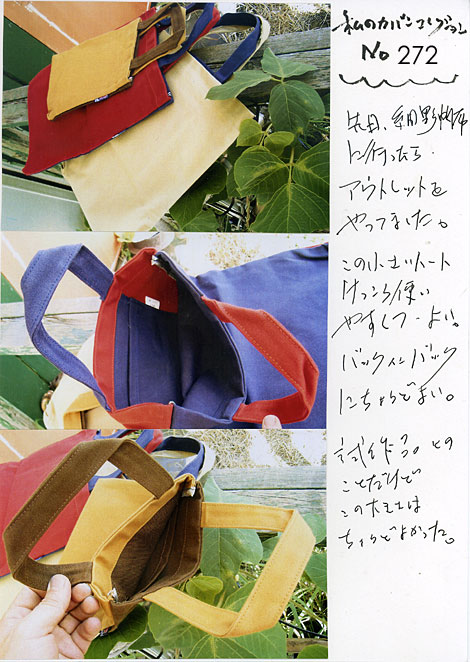 私のカバンコレクション
No 272
先日、細野帆布
に行ったら
アウトレットを
やってました。
この小さいトート
けっこう使い
やすくって よい。
バックインバック
にちょうどよい。
試作?。との
ことだけど
この大きさは
ちょうどよかった。